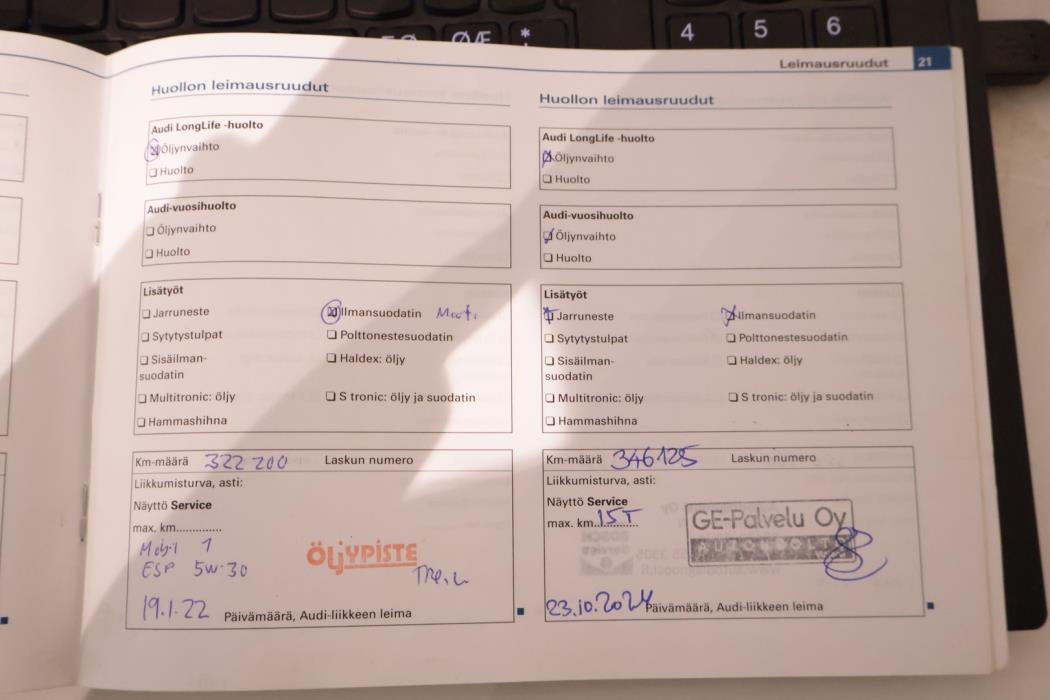 4 5 6
ØÆ *
Leimausruudut 21
Huollon leimausruudut
Audi LongLife -huolto
Öljynvaihto
Huolto
Audi-vuosihuolto
Öljynvaihto
Huolto
Lisätyöt
Jarruneste
Ilmansuodatin
Sytytystulpat
Polttonestesuodatin
Sisäilman-
suodatin
Haldex: öljy
Multitronic: öljy
S tronic: öljy ja suodatin
Hammashihna
Km-määrä 322 200 Laskun numero
Liikkumisturva, asti:
Näyttö Service
max. km.............
Mobil 1
ESP 5w-30
ÖLJYPISTE
19.1.22 Päivämäärä, Audi-liikkeen leima
Huollon leimausruudut
Audi LongLife -huolto
Öljynvaihto
Huolto
Audi-vuosihuolto
Öljynvaihto
Huolto
Lisätyöt
Jarruneste
Ilmansuodatin
Sytytystulpat
Polttonestesuodatin
Sisäilman-
suodatin
Haldex: öljy
Multitronic: öljy
S tronic: öljy ja suodatin
Hammashihna
Km-määrä 346125 Laskun numero
Liikkumisturva, asti:
Näyttö Service
max. km. 15T
GE-Palvelu Oy
23.10.2024 Päivämäärä, Audi-liikkeen leima